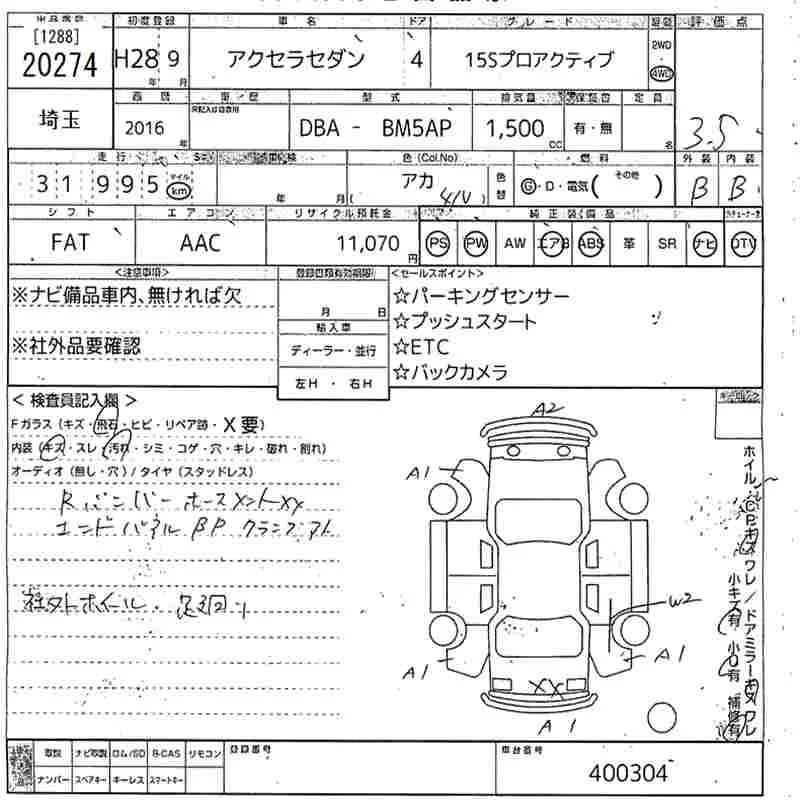 [1288] 初度登録 車名 ドア グレード 評価点
20274 H28 9 アクセラセダン 4 15Sプロアクティブ 2WD 4WD
年 月
型式 排気量 定員
埼玉 2016 DBA - BM5AP 1,500 有・無 3.5
年 CC 名
走行 色(Col.No) 燃料 外装 内装
31995 マイル km 年 月( アカ 41V ) 色替 G・D・電気( その他 ) B B
シフト エアコン リサイクル預託金 純正装備品
FAT AAC 11,070 円 PS PW AW エアB ABS 革 SR ナビ DTV
<注意事項> 登録書類有効期限 <セールスポイント>
※ナビ備品車内、無ければ欠 ☆パーキングセンサー
月 日 ☆プッシュスタート
輸入車
※社外品要確認 ディーラー・並行 ☆ETC
左H・右H ☆バックカメラ
<検査員記入欄>
Fガラス(キズ・飛石・ヒビ・リペア跡・X要)
内装(キズ・スレ・汚れ・シミ・コゲ・穴・キレ・破れ・割れ)
オーディオ(無し・穴)/タイヤ(スタッドレス)
Rバンパーホースメント XX
エンドパネル BP クランプアト
社外ホイール・足廻り
A2
A1
W2
A1
A1
XX
A1
取説 ナビ取説 ロム/SD B-CAS リモコン 登録番号 車台番号
ナンバー スペアキー キーレス スマートキー
400304